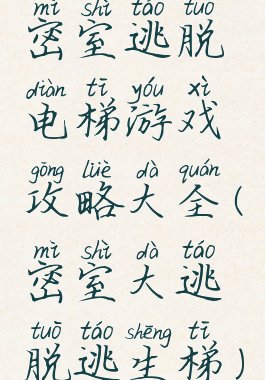 mì shì táo tuō
密室逃脱
diàn tī yóu xì
电梯游戏
gōng lüè dà quán
攻略大全(
mì shì dà táo
密室大逃
tuō táo shēng tī
脱逃生梯)